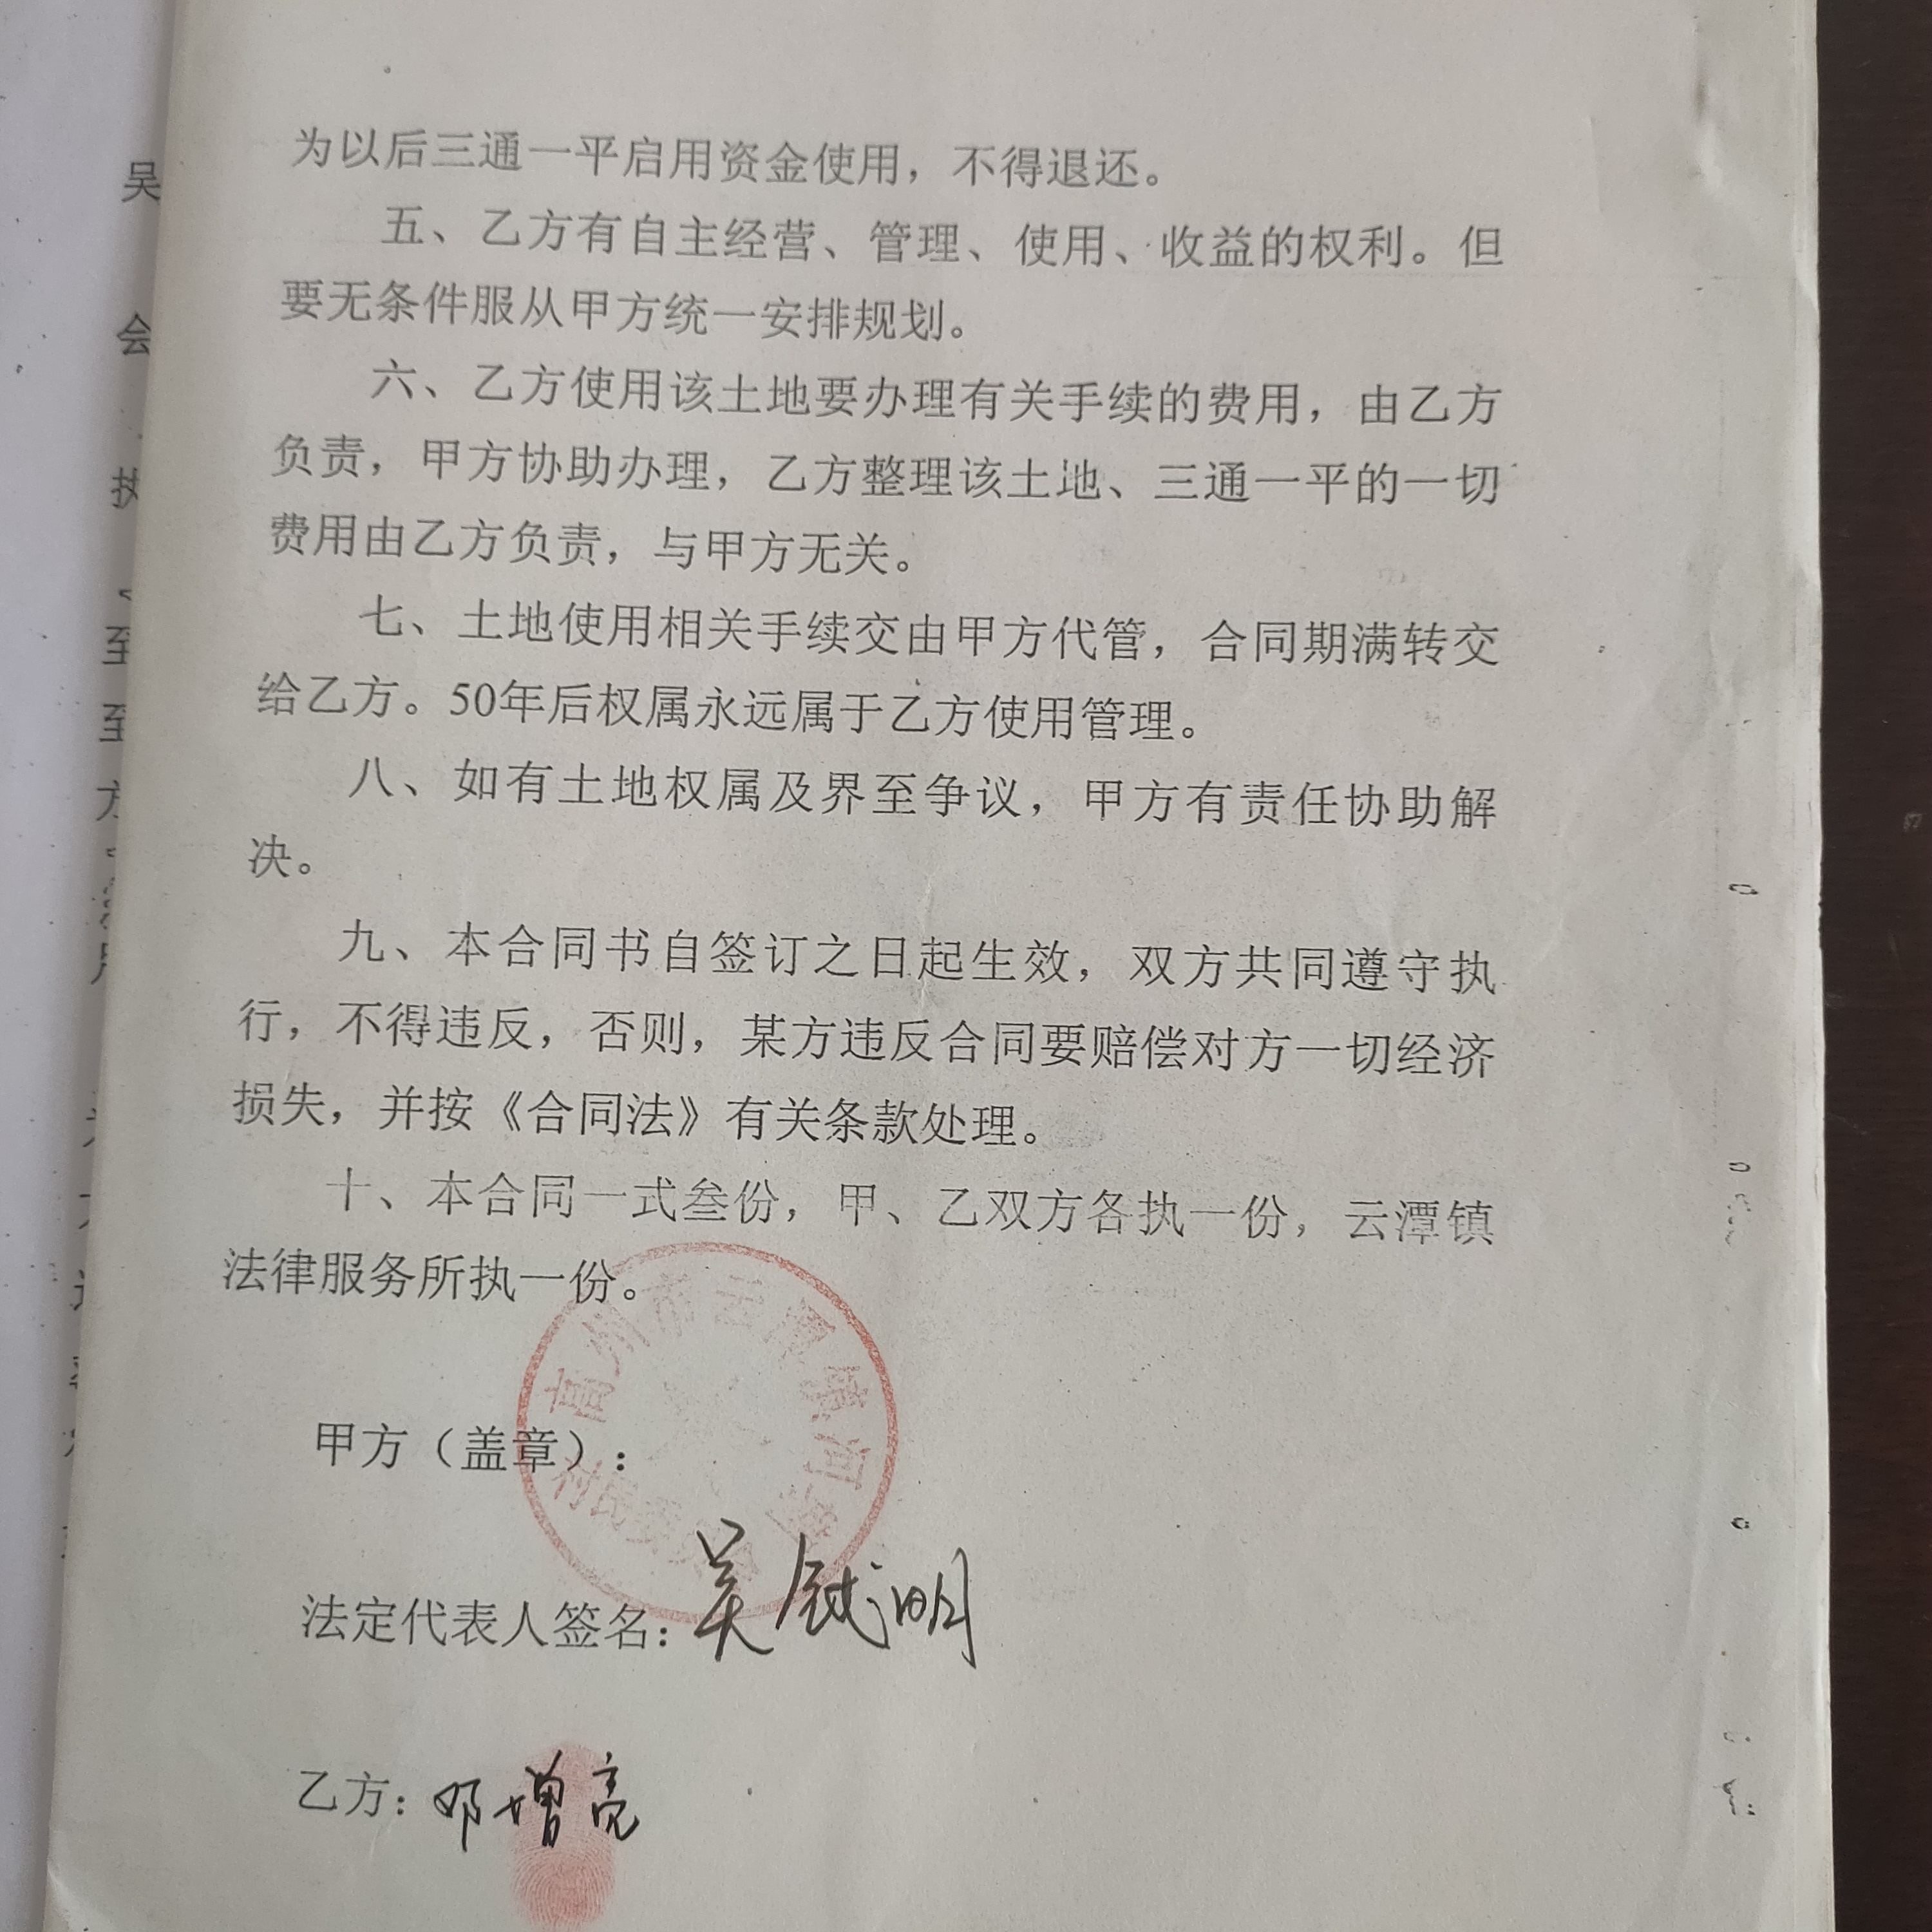 为以后三通一平启用资金使用，不得退还。
五、乙方有自主经营、管理、使用、收益的权利。但
要无条件服从甲方统一安排规划。
六、乙方使用该土地要办理有关手续的费用，由乙方
负责，甲方协助办理，乙方整理该土地、三通一平的一切
费用由乙方负责，与甲方无关。
七、土地使用相关手续交由甲方代管，合同期满转交
给乙方。50年后权属永远属于乙方使用管理。
八、如有土地权属及界至争议，甲方有责任协助解
决。
九、本合同书自签订之日起生效，双方共同遵守执
行，不得违反，否则，某方违反合同要赔偿对方一切经济
损失，并按《合同法》有关条款处理。
十、本合同一式叁份，甲、乙双方各执一份，云潭镇
法律服务所执一份。
高州市云潭镇河
村民委员会
甲方（盖章）：
法定代表人签名：吴 明
乙方：邓增亮
吴
会
执
至
至
方